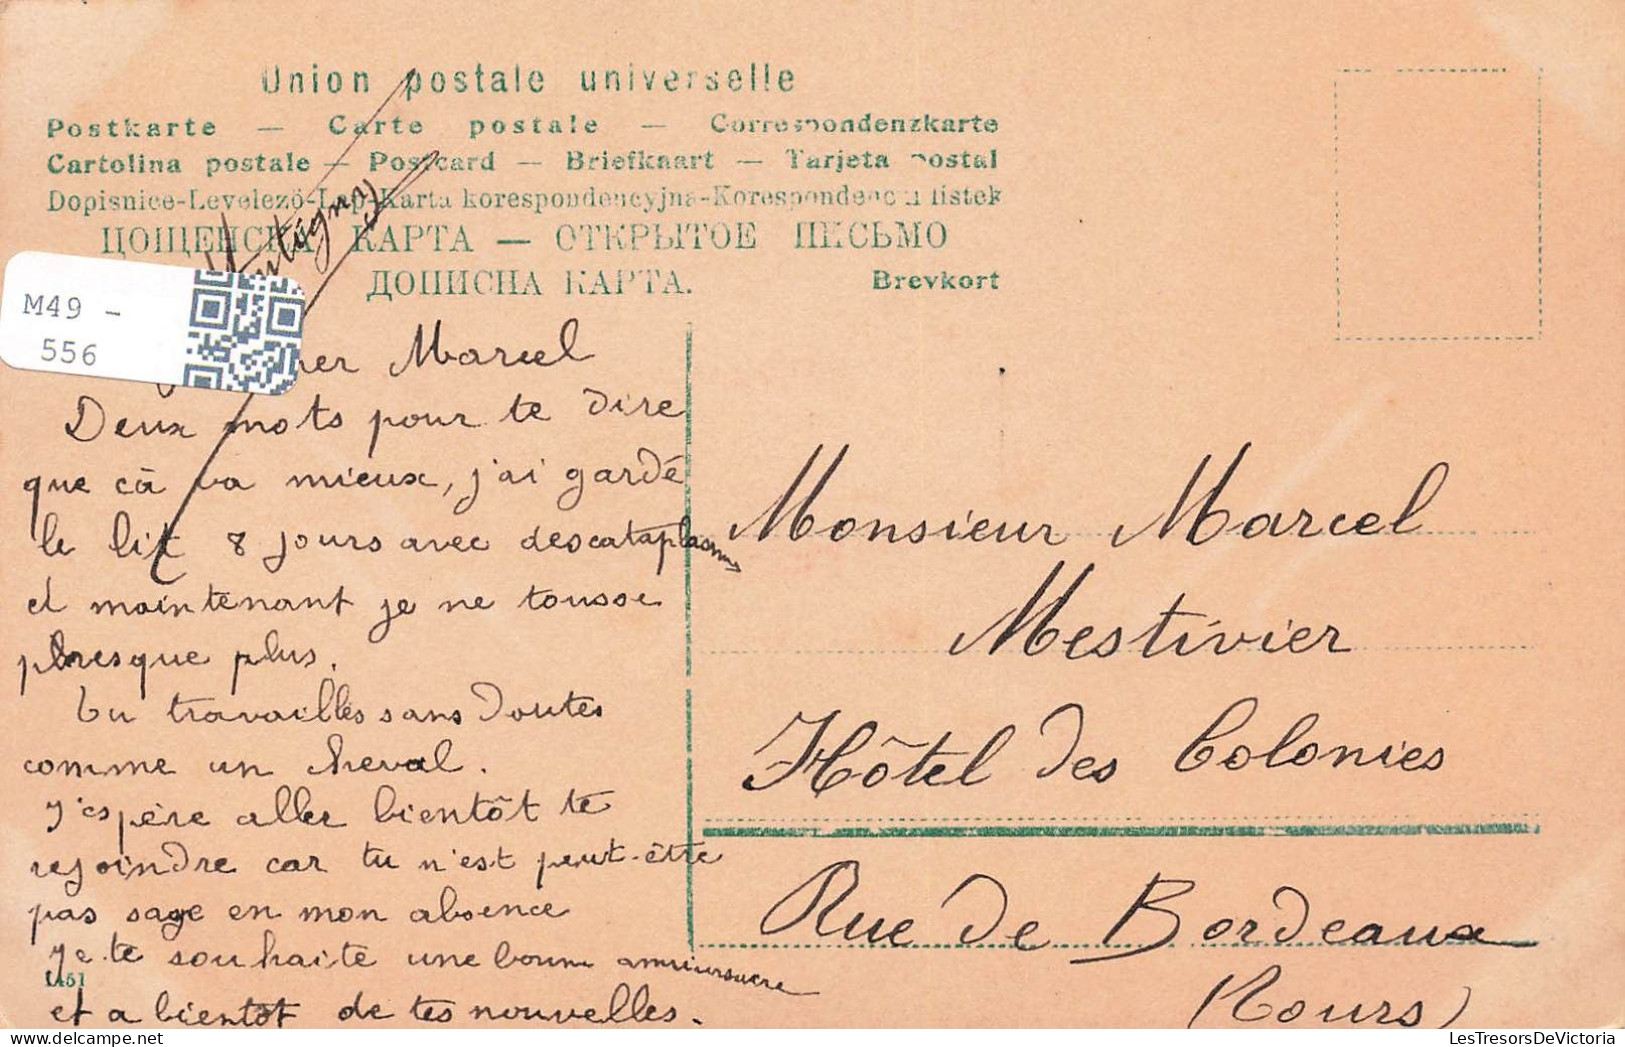 Union postale universelle
Postkarte — Carte postale — Correspondenzkarte
Cartolina postale — Postcard — Briefkaart — Tarjeta postal
Dopisnice-Levelező-Lap-Karta korespondencyjna-Korespondenčni listek
ЦОЩЕНСКА КАРТА — ОТКРЫТОЕ ПИСЬМО
ДОПИСНА КАРТА. Brevkort
M49 -
556
Marcel
Deux mots pour te dire
que cà va mieux, j'ai gardé
le lit 8 jours avec des cataplasmes
et maintenant je ne tousse
presque plus.
Tu travailles sans doutes
comme un cheval.
J'espère aller bientôt te
rejoindre car tu n'est peut-être
pas sage en mon absence
Je te souhaite une bonne
et a bientôt de tes nouvelles.
1451
Monsieur Marcel
Mestivier
Hôtel des Colonies
Rue de Bordeaux
(Tours)
LesTresorsDeVictoria